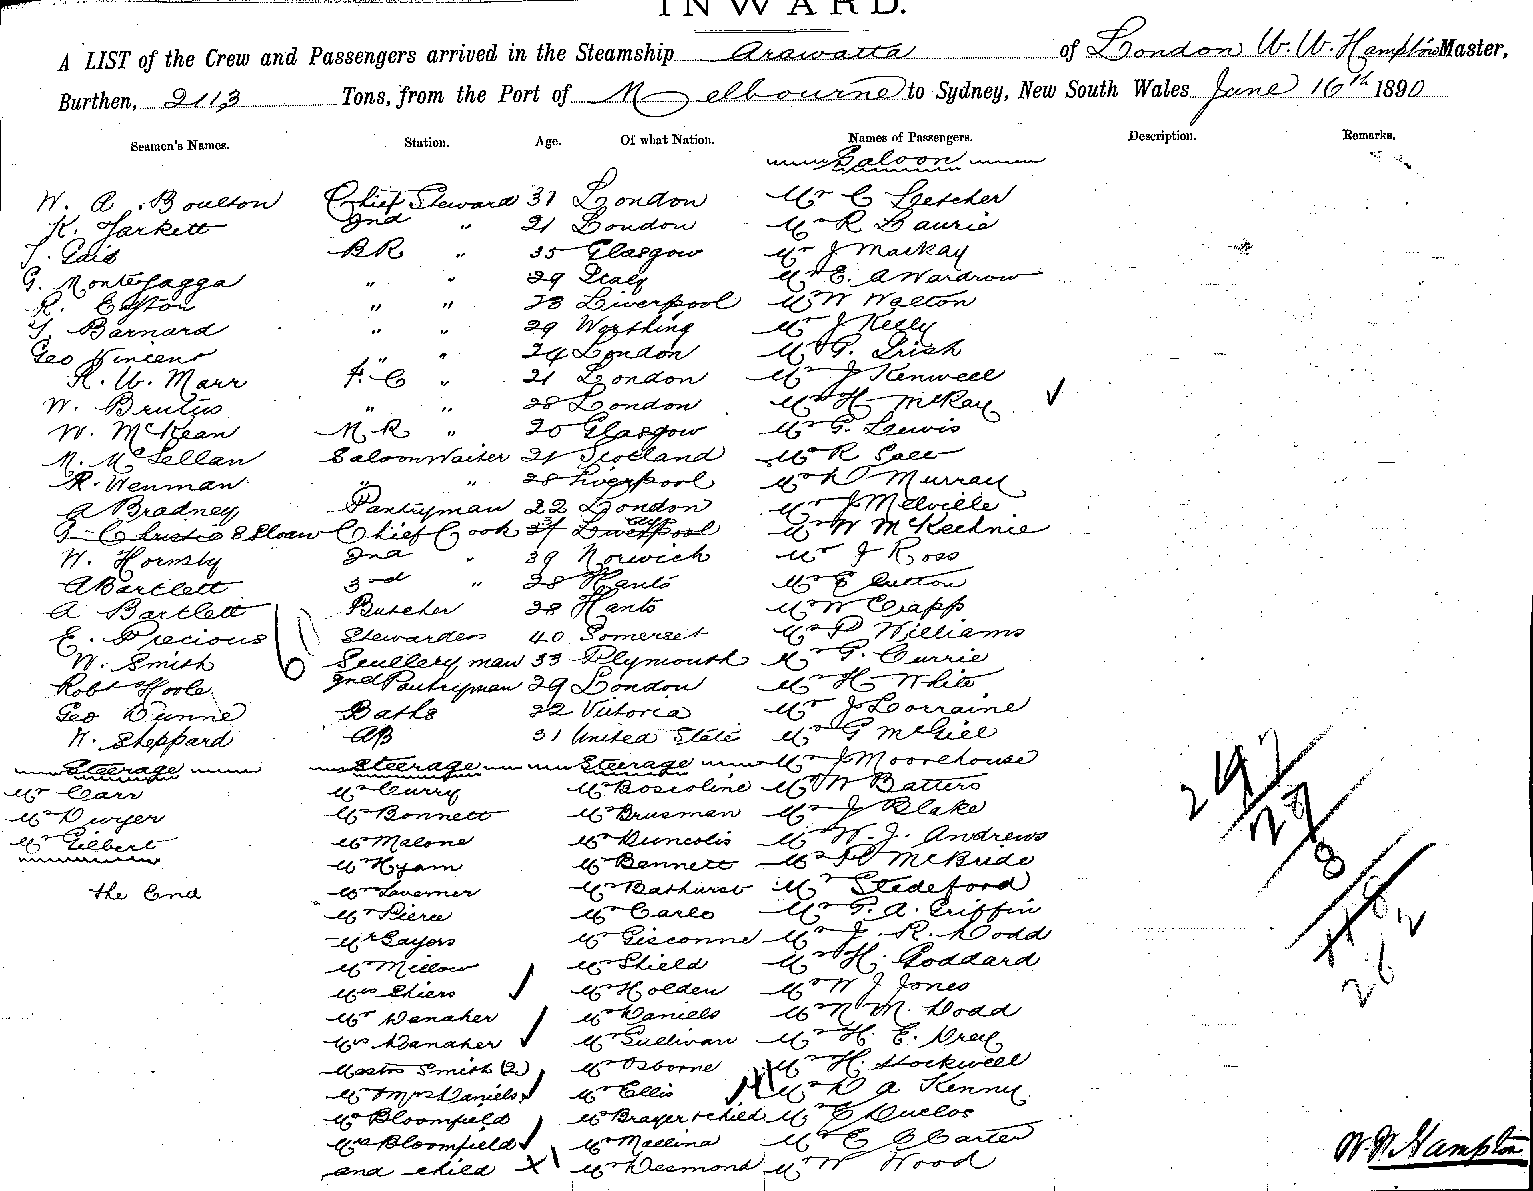 INWARD.
A LIST of the Crew and Passengers arrived in the Steamship Arawatta of London W. W. Hampton Master,
Burthen, 2113 Tons, from the Port of Melbourne to Sydney, New South Wales June 16th 1890
Seamen's Names. Station. Age. Of what Nation. Names of Passengers. Description. Remarks.
Saloon
W. A. Boulton Chief Steward 31 London Mr C Fletcher
K. Tarkett 2nd " 21 London Mr R Laurie
BR " 35 Glasgow Mr J Mackay
G. Montefagga " " 29 Italy Mr E. A Wardrow
R. " " 23 Liverpool Mr W Walton
T. Barnard " " 29 Worthing Mr J Kelly
Geo Vincent " " 24 London Mr G. Irish
R. W. Marr F. C " 21 London Mr J Kenwell
W. Brutus " " 28 London Mr H McKay
W. McKean M R " 20 Glasgow Mr G. Lewis
M. McLellan Saloon Waiter 21 Scotland Mr R
R. Wenman " " 28 Liverpool Mr Murray
A Bradney Pantryman 22 London Mr J Melville
Sloan Chief Cook Mr W McKechnie
W. Hornsby 2nd " 39 Norwich Mr J Ross
A Bartlett 3rd " 28 Hants Mr E Cutton
A Bartlett Butcher 28 Hants Mr W Crapp
E. Precious Stewardess 40 Somerset Mr P Williams
W. Smith Scullery man 33 Plymouth Mr G. Currie
Robt Hoole 2nd Pantryman 29 London Mr H White
Geo Dunne Baths 22 Victoria Mr J Lorraine
W. Sheppard AB 31 United State Mr G McGill
Steerage Steerage Steerage Mr J Moorehouse
Mr Carr Mr Curry Mr Boscoline Mr W Batters
Mr Dwyer Mr Bonnett Mr Brusman Mr J Blake
Mr Gilbert Mr Malone Mr Duncolis Mr W. J. Andrews
Mr Hyam Mr Bennett Mr McBride
the End Mr Lavemer Mr Bathurst Mr Stedeford
Mr Pierce Mr Carlo Mr G. A. Griffin
Mr Sayers Mr Gisconne Mr J. R. Dodd
Mr Millow Mr Shield Mr H. Goddard
Mrs Shiers Mr Holden Mr W J Jones
Mr Danaher Mr Daniels Mr N M. Dodd
Mrs Danaher Mr Sullivan Mr H. E. Dray
Masters Smith (2) Mr Osborne Mr H. Stockwell
Mr & Mrs Daniels Mr Ellis Mr D A Kenny
Mr Bloomfield Mr Brayer & child Mr E Duclos
Mrs Bloomfield Mr Mallina Mr E C Carter
and child Mr Desmond Mr W Wood
29
8
262
W. W. Hampton